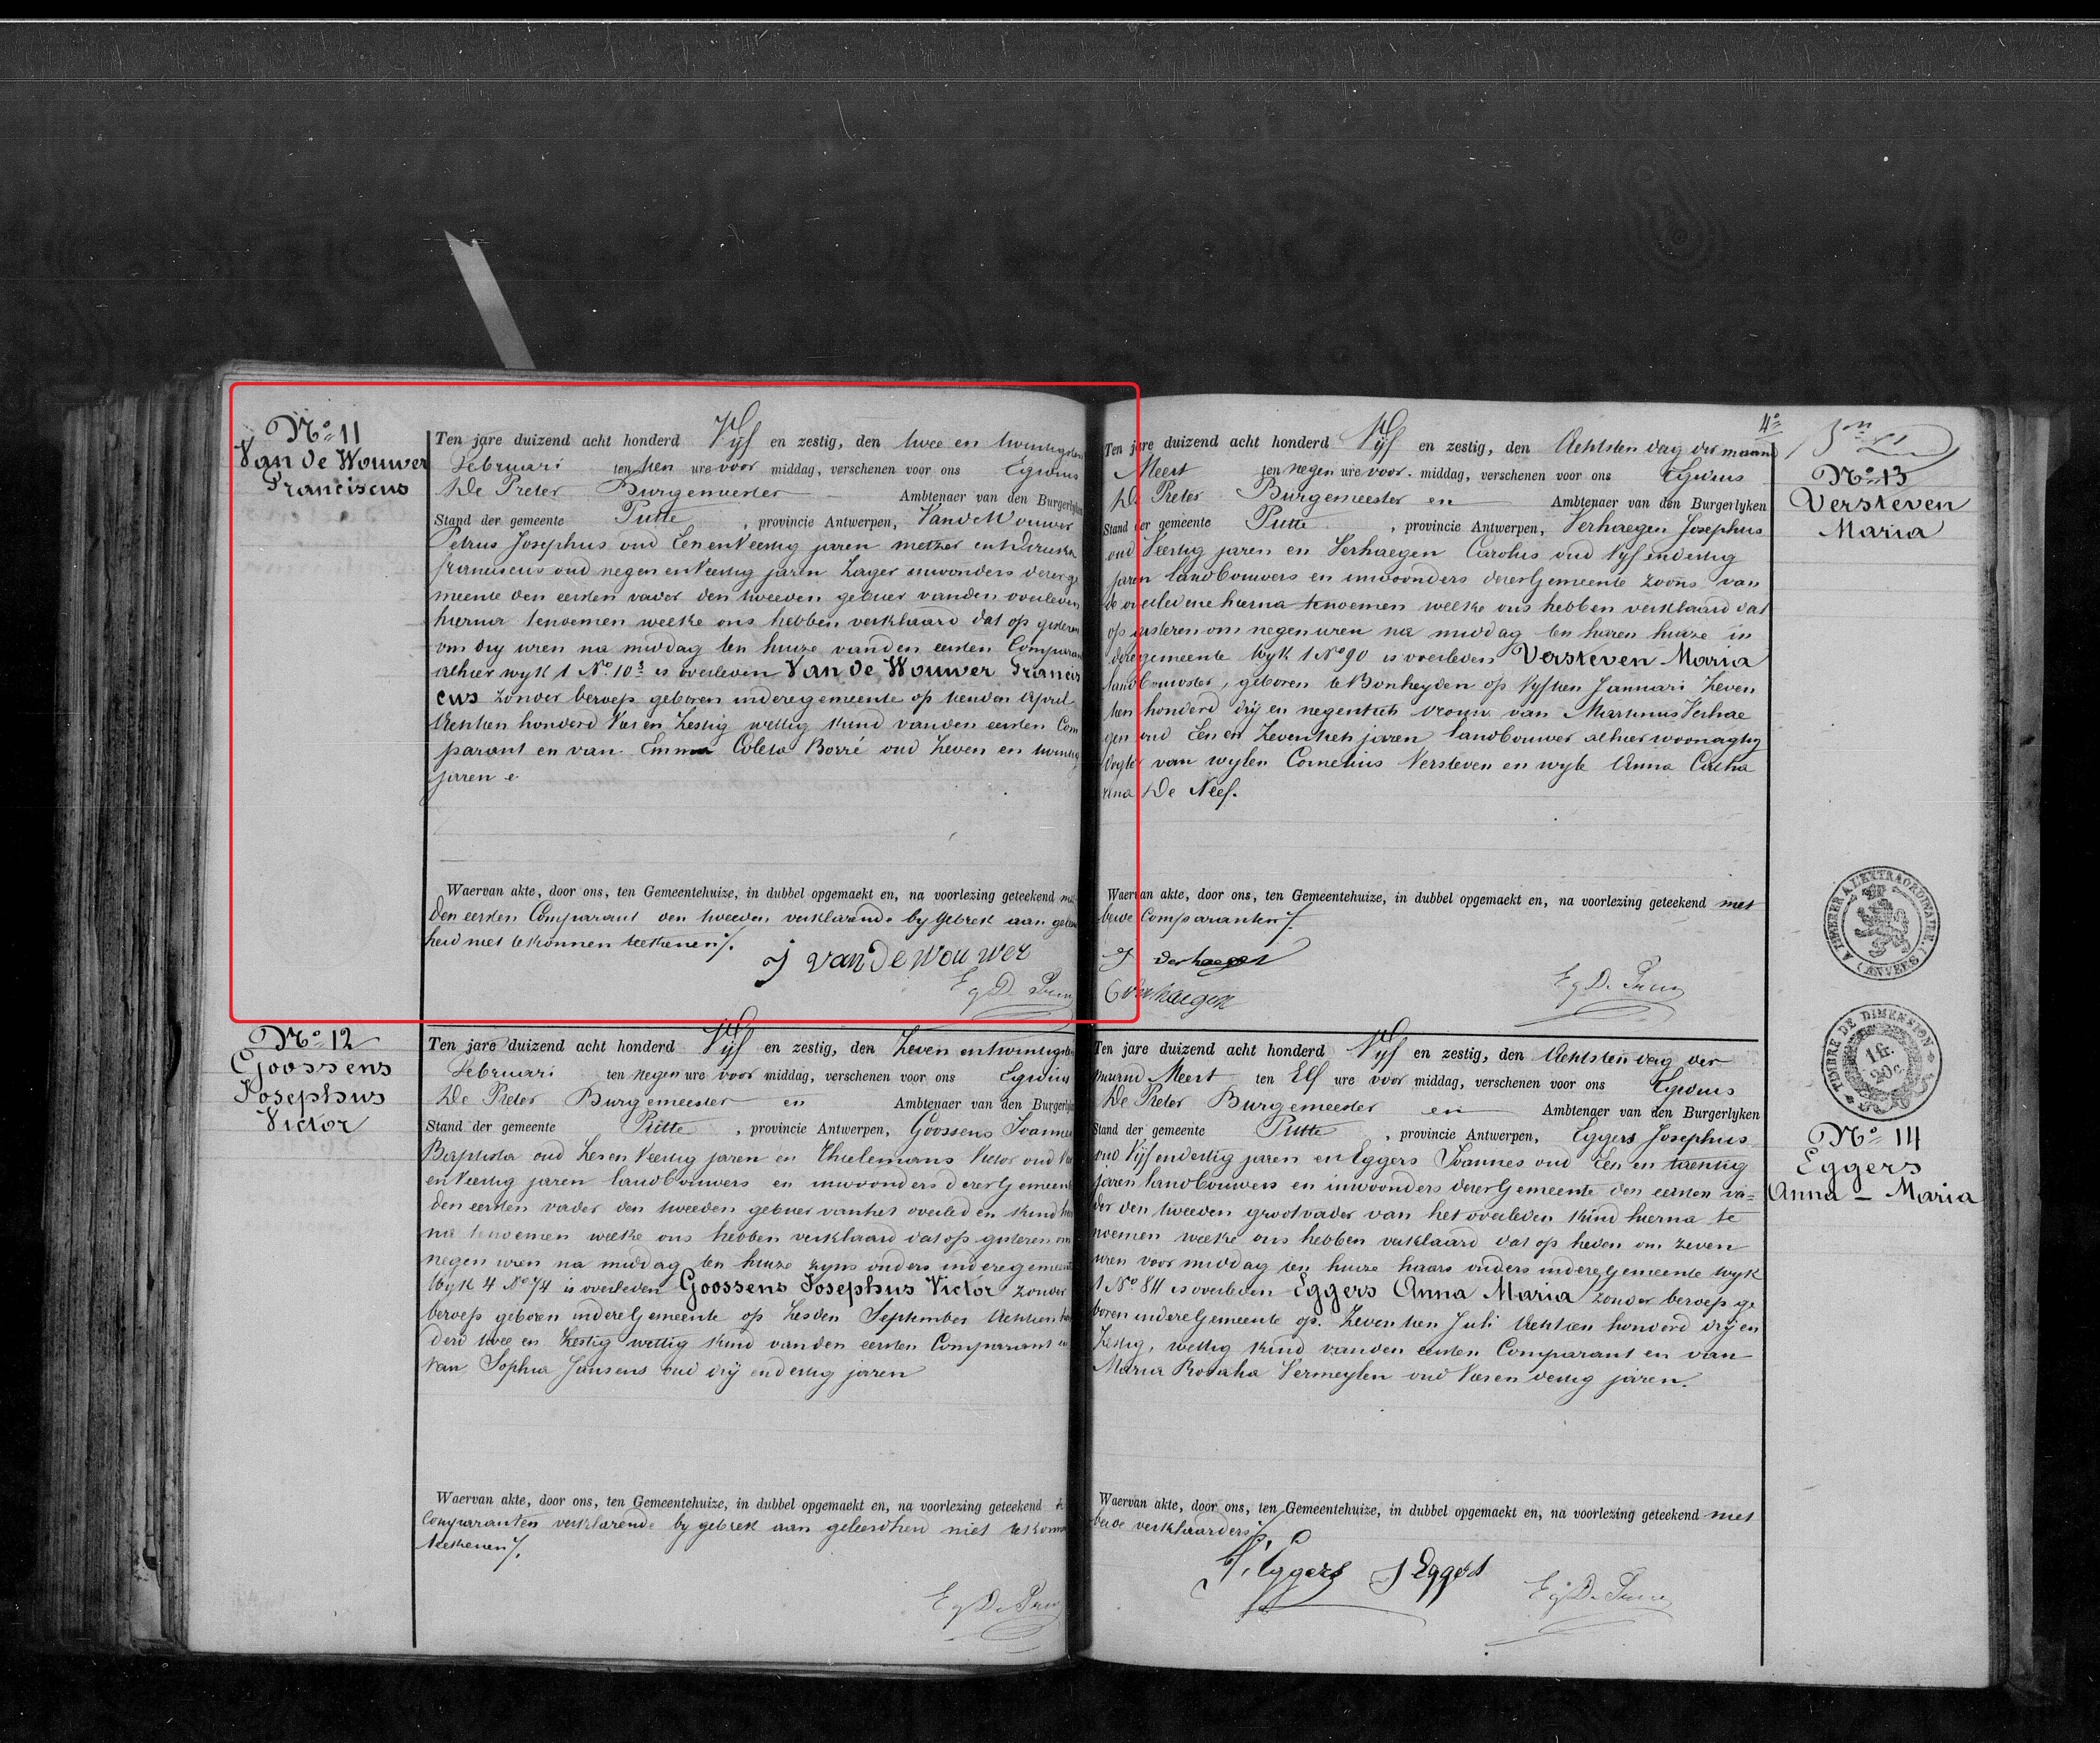 No 11
Van de Wouwer
Franciscus
Ten jare duizend acht honderd Vijf en zestig, den twee en twintigsten
Februari ten tien ure voor middag, verschenen voor ons Egidius
De Preter Burgemeester Ambtenaer van den Burgerlyken
Stand der gemeente Putte, provincie Antwerpen, Van de Wouwer
Petrus Josephus oud Een en Veertig jaren
Franciscus oud negen en Veertig jaren inwonders derer ge
meente den eersten vader den tweeden gebuer van den overleden
hierna tenoemen welke ons hebben verklaard dat op gisteren
om dry uren na middag ten huize van den eersten Comparant
alhier wyk 1 No 10 3 is overleden Van de Wouwer Francis
cus zonder beroep geboren in deze gemeente op tienden April
Achtien honderd Vier en Zestig wettig kind van den eersten Com
parant en van Emma Coleta Borré oud Zeven en twintig
jaren
Waervan akte, door ons, ten Gemeentehuize, in dubbel opgemaekt en, na voorlezing geteekend met
den eersten Comparant den tweeden verklarende by gebrek aan geleerd
heid niet te konnen teekenen ⁒.
J Van de Wouwer
Eg De Preter
No 12
Goossens
Josephus
Victor
Ten jare duizend acht honderd Vijf en zestig, den Zeven en twintigsten
Februari ten negen ure voor middag, verschenen voor ons Egidius
De Preter Burgemeester en Ambtenaer van den Burgerlyken
Stand der gemeente Putte, provincie Antwerpen, Goossens Joannes
Baptista oud Zes en Veertig jaren en Thielemans Victor oud
en Veertig jaren landbouwers en inwoonders derer Gemeente
den eersten vader den tweeden gebuer van het overleden kind hier
na tenoemen welke ons hebben verklaard dat op gisteren om
negen uren na middag ten huize zyns ouders in deze gemeente
Wyk 4 No 74 is overleden Goossens Josephus Victor zonder
beroep geboren in deze Gemeente op Zesden September Achtien hon
derd twee en Zestig wettig kind van den eersten Comparant en
van Sophia Jansens oud drij en dertig jaren
Waervan akte, door ons, ten Gemeentehuize, in dubbel opgemaekt en, na voorlezing geteekend
Comparanten verklarende by gebrek aan geleerdheid niet te konnen
teekenen ⁒.
Eg De Preter
4e
Ten jare duizend acht honderd Vijf en zestig, den Achtsten dag der maand
Meert ten negen ure voor middag, verschenen voor ons Egidius
De Preter Burgemeester en Ambtenaer van den Burgerlyken
Stand der gemeente Putte, provincie Antwerpen, Verhaegen Josephus
oud Veertig jaren en Verhaegen Carolus oud Vyf en dertig
jaren landbouwers en inwoonders derer Gemeente zoons van
de overledene hierna tenoemen welke ons hebben verklaard dat
op gisteren om negen uren na middag ten haren huize in
deze gemeente Wyk 1 No 90 is overleden Versteven Maria
landbouwster, geboren te Bonheyden op Vyftien Januari Zeven
tien honderd drij en negentich vrouw van Martinus Verhae
gen oud Een en Zeventich jaren landbouwer alhier woonagtig
dogter van wylen Cornelius Versteven en wyle Anna Catha
rina De Neef.
Waervan akte, door ons, ten Gemeentehuize, in dubbel opgemaekt en, na voorlezing geteekend met
beide Comparanten ⁒.
J Verhaegen
C Verhaegen
Eg De Preter
No 13
Versteven
Maria
TIMBRER A L'EXTRAORDINAIRE
(ANVERS)
TIMBRE DE DIMENSION
1 fr.
20 c
Ten jare duizend acht honderd Vijf en zestig, den Achtsten dag der
maand Meert ten Elf ure voor middag, verschenen voor ons Egidius
De Preter Burgemeester en Ambtenaer van den Burgerlyken
Stand der gemeente Putte, provincie Antwerpen, Eggers Josephus
oud Vyf en dertig jaren en Eggers Joannes oud Een en
jaren landbouwers en inwoonders derer Gemeente den eersten va=
der den tweeden grootvader van het overleden kind hierna te
noemen welke ons hebben verklaard dat op heden om zeven
uren voor middag ten huize haars ouders in deze Gemeente Wyk
1 No 84 is overleden Eggers Anna Maria zonder beroep ge
boren in deze Gemeente op Zeventien Juli Achtien honderd drij en
Zestig, wettig kind van den eersten Comparant en van
Maria Rosalia Vermeylen oud Vier en dertig jaren.
Waervan akte, door ons, ten Gemeentehuize, in dubbel opgemaekt en, na voorlezing geteekend met
beide verklaarders ⁒.
J. Eggers J Eggers
Eg De Preter
No 14
Eggers
Anna - Maria